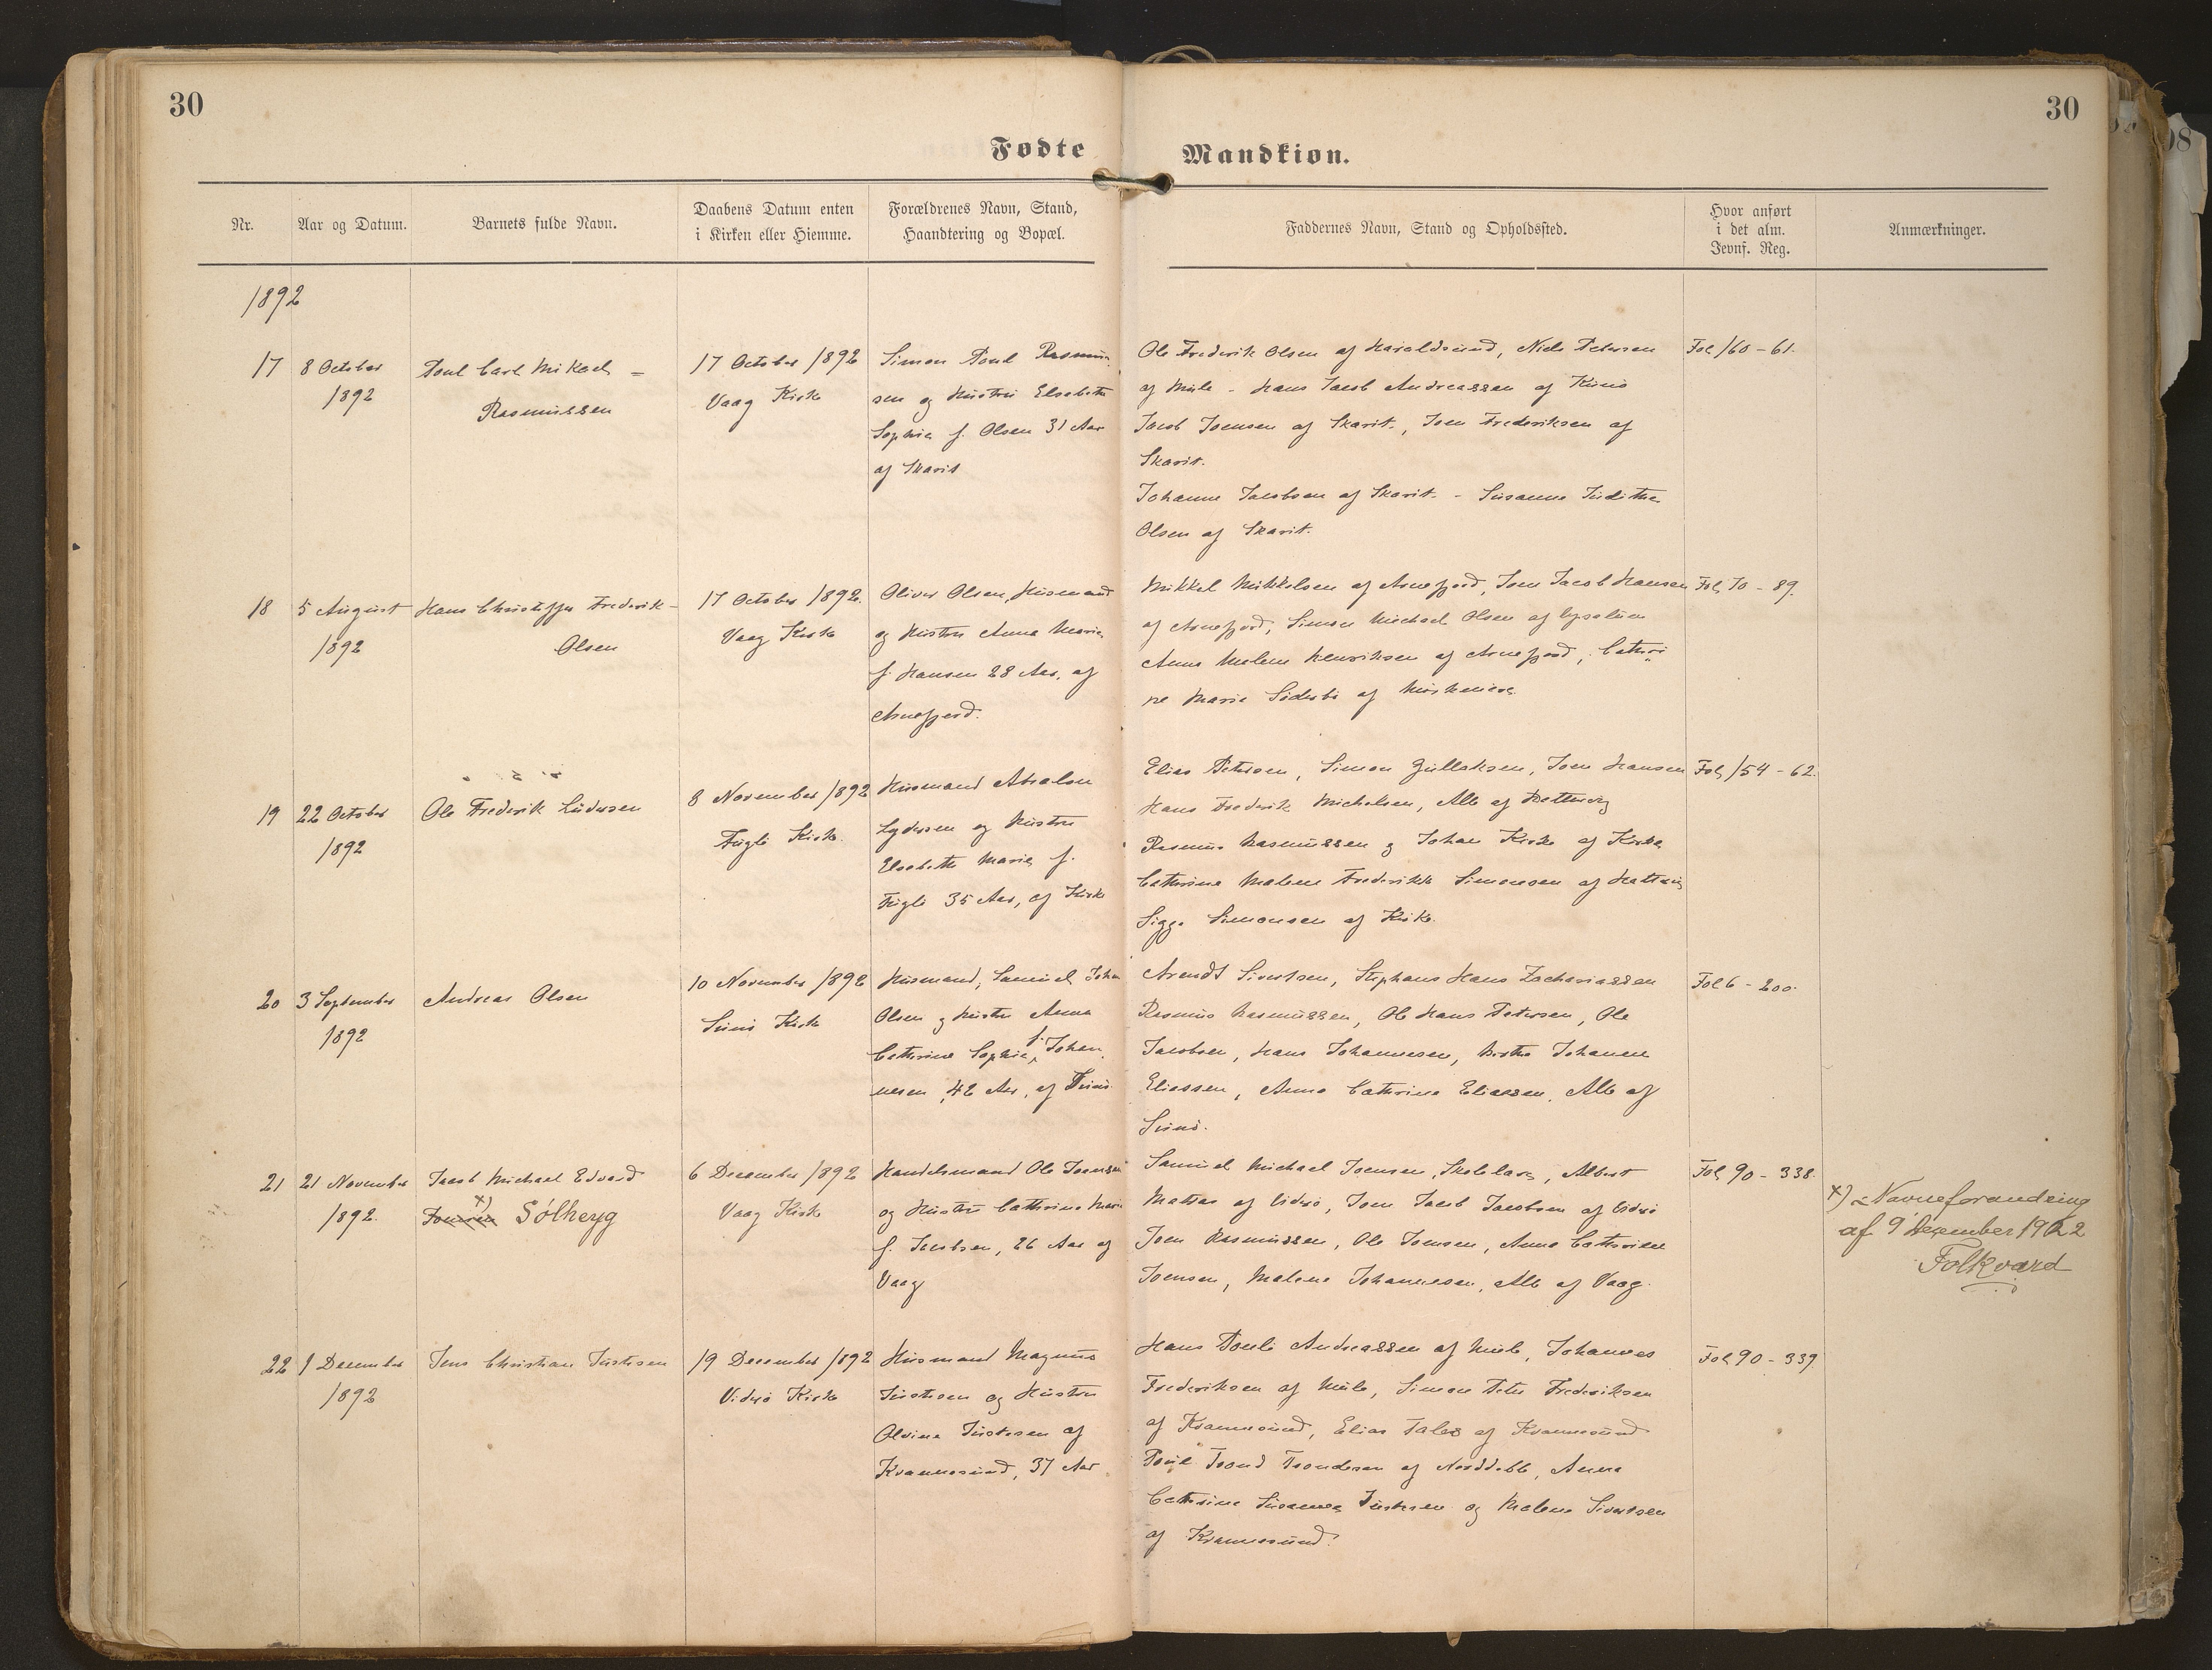 30
30
Fødte
Mandkiøn.
Nr.
Aar og Datum.
Barnets fulde Navn.
Daabens Datum enten
i Kirken eller Hiemme.
Forældrenes Navn, Stand,
Haandtering og Bopæl.
Faddernes Navn, Stand og Opholdssted.
Hvor anført
i det alm.
Jevnf. Reg.
Anmærkninger.
1892
17
8 October
1892
Poul Carl Mikael =
Rasmussen
17 October 1892
Vaag Kirke
Simon Poul Rasmus-
sen og Hustru Elsebeth
Sophie f. Olsen 31 Aar
af Skarit
Ole Frederik Olsen af Haraldsund, Niels Petersen
af Mule - Hans Jacob Andreassen af Kunø
Jacob Joensen af Skarit., Joen Frederiksen af
Skarit.
Johanne Jacobsen af Skarit. - Susanne Judithe
Olsen af Skarit.
Fol 160 - 61.
18
5 August
1892
Hans Christoffer Frederik -
Olsen
17 October 1892.
Vaag Kirke
Oliver Olsen, Husmand
og Hustru Anna Marie
f. Hansen 28 Aar, af
Arnefjord.
Mikkel Mikkelsen af Arnefjord, Joen Jacob Hansen
af Arnefjord, Simon Michael Olsen af
Anna Malene Henriksen af Arnefjord, Cathri
ne Marie af
Fol, 70 - 89.
19
22 October
1892
Ole Frederik Lüdersen
8 November 1892
Fuglø Kirke.
Husmand Absalon
Lydersen og Hustru
Elsebeth Marie f.
Fuglø 35 Aar, af Kirke
Elias Petersen, Simon Gullaksen, Joen Hansen
Hans Frederik Michelsen, Alle af Hattervig
Rasmus Rasmussen og Johan Kirke af Kirke
Cathrine Malene Frederikke Simonsen af Hattervig
Sigga Simonsen af Kirke.
Fol, 154 - 62.
20
3 September
1892
Andreas Olsen
10 November 1892
Svinø Kirke
Husmand, Samuel Johan
Olsen og Hustru Anna
Cathrine Sophie, f. Johan
nesen, 42 Aar, af Svinø
Arendt Sivertsen, Stephans Hans Zachariassen
Rasmus Rasmussen, Ole Hans Petersen, Ole
Jacobsen, Hans Johannesen, Birthe Johanne
Eliassen, Anna Cathrine Eliassen, Alle af
Svinø.
Fol 6 - 200.
21
21 November
1892.
Jacob Michael Edvard
Joensen x) Sólheyg
6 December 1892
Vaag Kirke
Handelsmand Ole Joensen
og Hustru Cathrine Marie
f. Jacobsen, 26 Aar af
Vaag
Samuel Michael Joensen, Skolelærer, Albert
Matras af Viderø, Joen Jacob Jacobsen af Viderø
Joen Rasmussen, Ole Joensen, Anna Cathrine
Joensen, Malene Johannesen, Alle af Vaag.
Fol, 90 - 338.
x) = Navneforandring
af 9 december 1922
Folkvard
22
1 December
1892
Jens Christian Justesen
19 December 1892
Viderø Kirke
Husmand Magnus
Justesen og Hustru
Olvine Justesen af
Kvannesund, 37 Aar
Hans Pouli Andreassen af Mule, Johannes
Frederiksen af Mule, Simon Peter Frederiksen
af Kvannesund, Elias Jales af Kvannesund
Poul Trond Trondesen af Norddeble, Anna
Cathrine Susanne Justesen og Malene Sivertsen
af Kvannesund.
Fol 90 - 339.